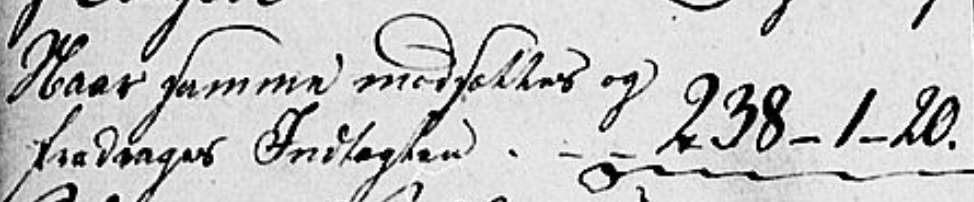 Naar samme modsættes og
fradrages Indtægten . - - 238-1-20.